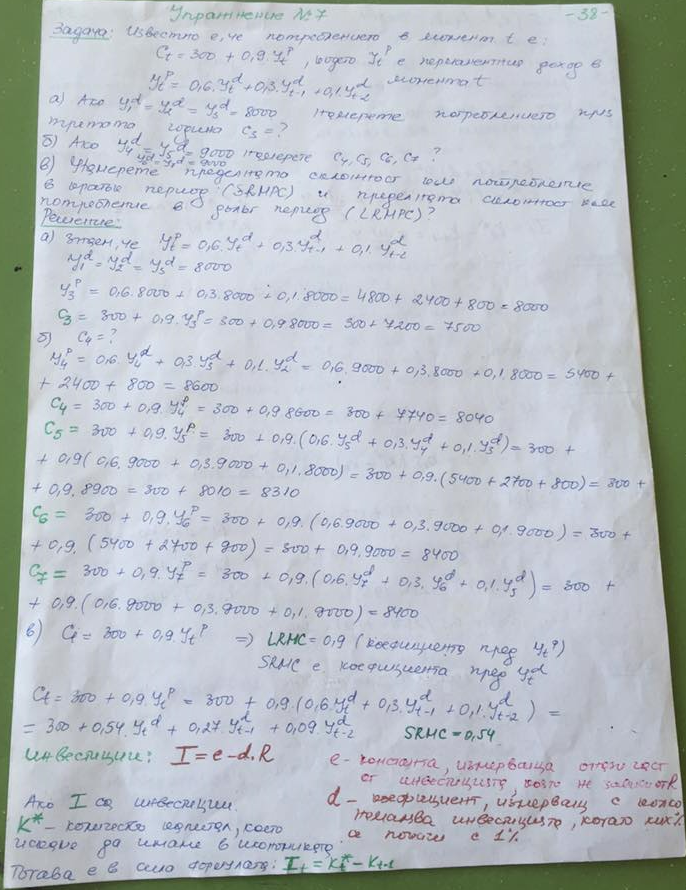 Упражнение №7
-38-
Задача: Известно е, че потреблението в момент t е:
Ct = 300 + 0,9.Yt^p, където Yt^p е перманентния доход в
момента t
Yt^p = 0,6.Yt^d + 0,3.Yt-1^d + 0,1.Yt-2^d
а) Ако Y1^d = Y2^d = Y3^d = 8000 намерете потреблението през
третата година C3 = ?
б) Ако Y4^d = Y5^d = 9000 намерете C4, C5, C6, C7 ?
Y6^d = Y7^d = 9000
в) Намерете пределната склонност към потребление
в кратък период (SRMPC) и пределната склонност към
потребление в дълъг период (LRMPC)?
Решение:
а) Знаем, че Yt^p = 0,6.Yt^d + 0,3.Yt-1^d + 0,1.Yt-2^d
Y1^d = Y2^d = Y3^d = 8000
Y3^p = 0,6.8000 + 0,3.8000 + 0,1.8000 = 4800 + 2400 + 800 = 8000
C3 = 300 + 0,9.Y3^p = 300 + 0,9.8000 = 300 + 7200 = 7500
б) C4 = ?
Y4^p = 0,6.Y4^d + 0,3.Y3^d + 0,1.Y2^d = 0,6.9000 + 0,3.8000 + 0,1.8000 = 5400 +
+ 2400 + 800 = 8600
C4 = 300 + 0,9.Y4^p = 300 + 0,9.8600 = 300 + 7740 = 8040
C5 = 300 + 0,9.Y5^p = 300 + 0,9.(0,6.Y5^d + 0,3.Y4^d + 0,1.Y3^d) = 300 +
+ 0,9(0,6.9000 + 0,3.9000 + 0,1.8000) = 300 + 0,9.(5400 + 2700 + 800) = 300 +
+ 0,9.8900 = 300 + 8010 = 8310
C6 = 300 + 0,9.Y6^p = 300 + 0,9.(0,6.9000 + 0,3.9000 + 0,1.9000) = 300 +
+ 0,9.(5400 + 2700 + 900) = 300 + 0,9.9000 = 8400
C7 = 300 + 0,9.Y7^p = 300 + 0,9.(0,6.Y7^d + 0,3.Y6^d + 0,1.Y5^d) = 300 +
+ 0,9.(0,6.9000 + 0,3.9000 + 0,1.9000) = 8400
в) Ct = 300 + 0,9.Yt^p => LRMC = 0,9 (коефициента пред Yt^p)
SRMC е коефициента пред Yt^d
Ct = 300 + 0,9.Yt^p = 300 + 0,9.(0,6.Yt^d + 0,3.Yt-1^d + 0,1.Yt-2^d) =
= 300 + 0,54.Yt^d + 0,27.Yt-1^d + 0,09.Yt-2^d SRMC = 0,54
Инвестиции: I = e - d.R
e - константа, измерваща онази част
от инвестициите, която не зависи от R
d - коефициент, измерващ с колко
намалява инвестициите, когато
се покачи с 1%
Ако I са инвестиции.
K* - количество капитал, което
искаме да имаме в икономиката
Тогава е в сила формулата: It = Kt* - Kt-1